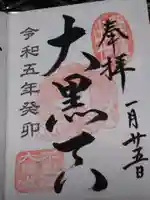 奉拝
一月廿五日
大黒天
令和五年癸卯